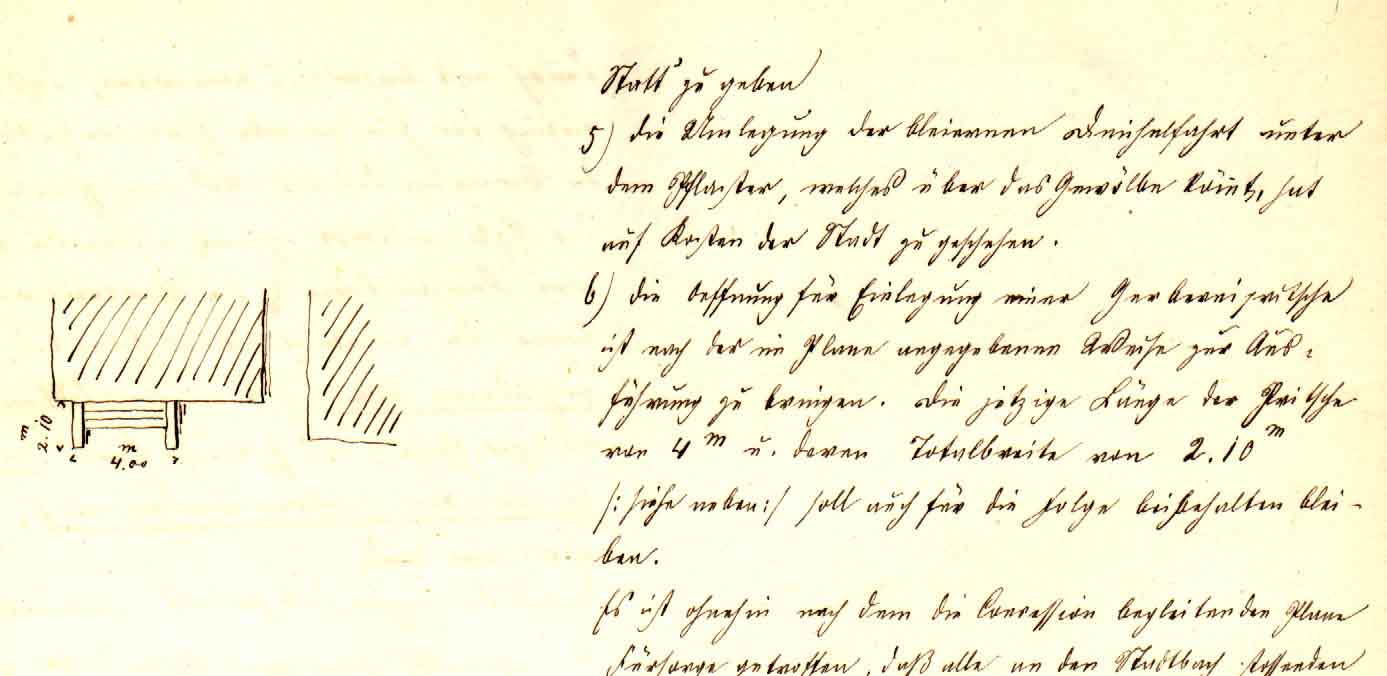 Statt zu geben
5) die Umlegung der bleiernen Deichelfahrt unter
dem Pflaster, welches über das Gewölbe kömt, hat
auf Kosten der Stadt zu geschehen.
6) die Oeffnung für Einlegung einer Gerbereipritsche
ist nach der im Plane angegebenen Weise zur Aus=
führung zu bringen. Die jetzige Länge der Pritsche
von 4 m u. deren Totalbreite von 2.10 m
/: siehe neben :/ soll auch für die Folge beibehalten blei-
ben.
Es ist ohnehin nach dem die Concession begleitenden Plane
Fürsorge getroffen, daß alle an den Stadtbach stossenden
m
2.10
m
4.00